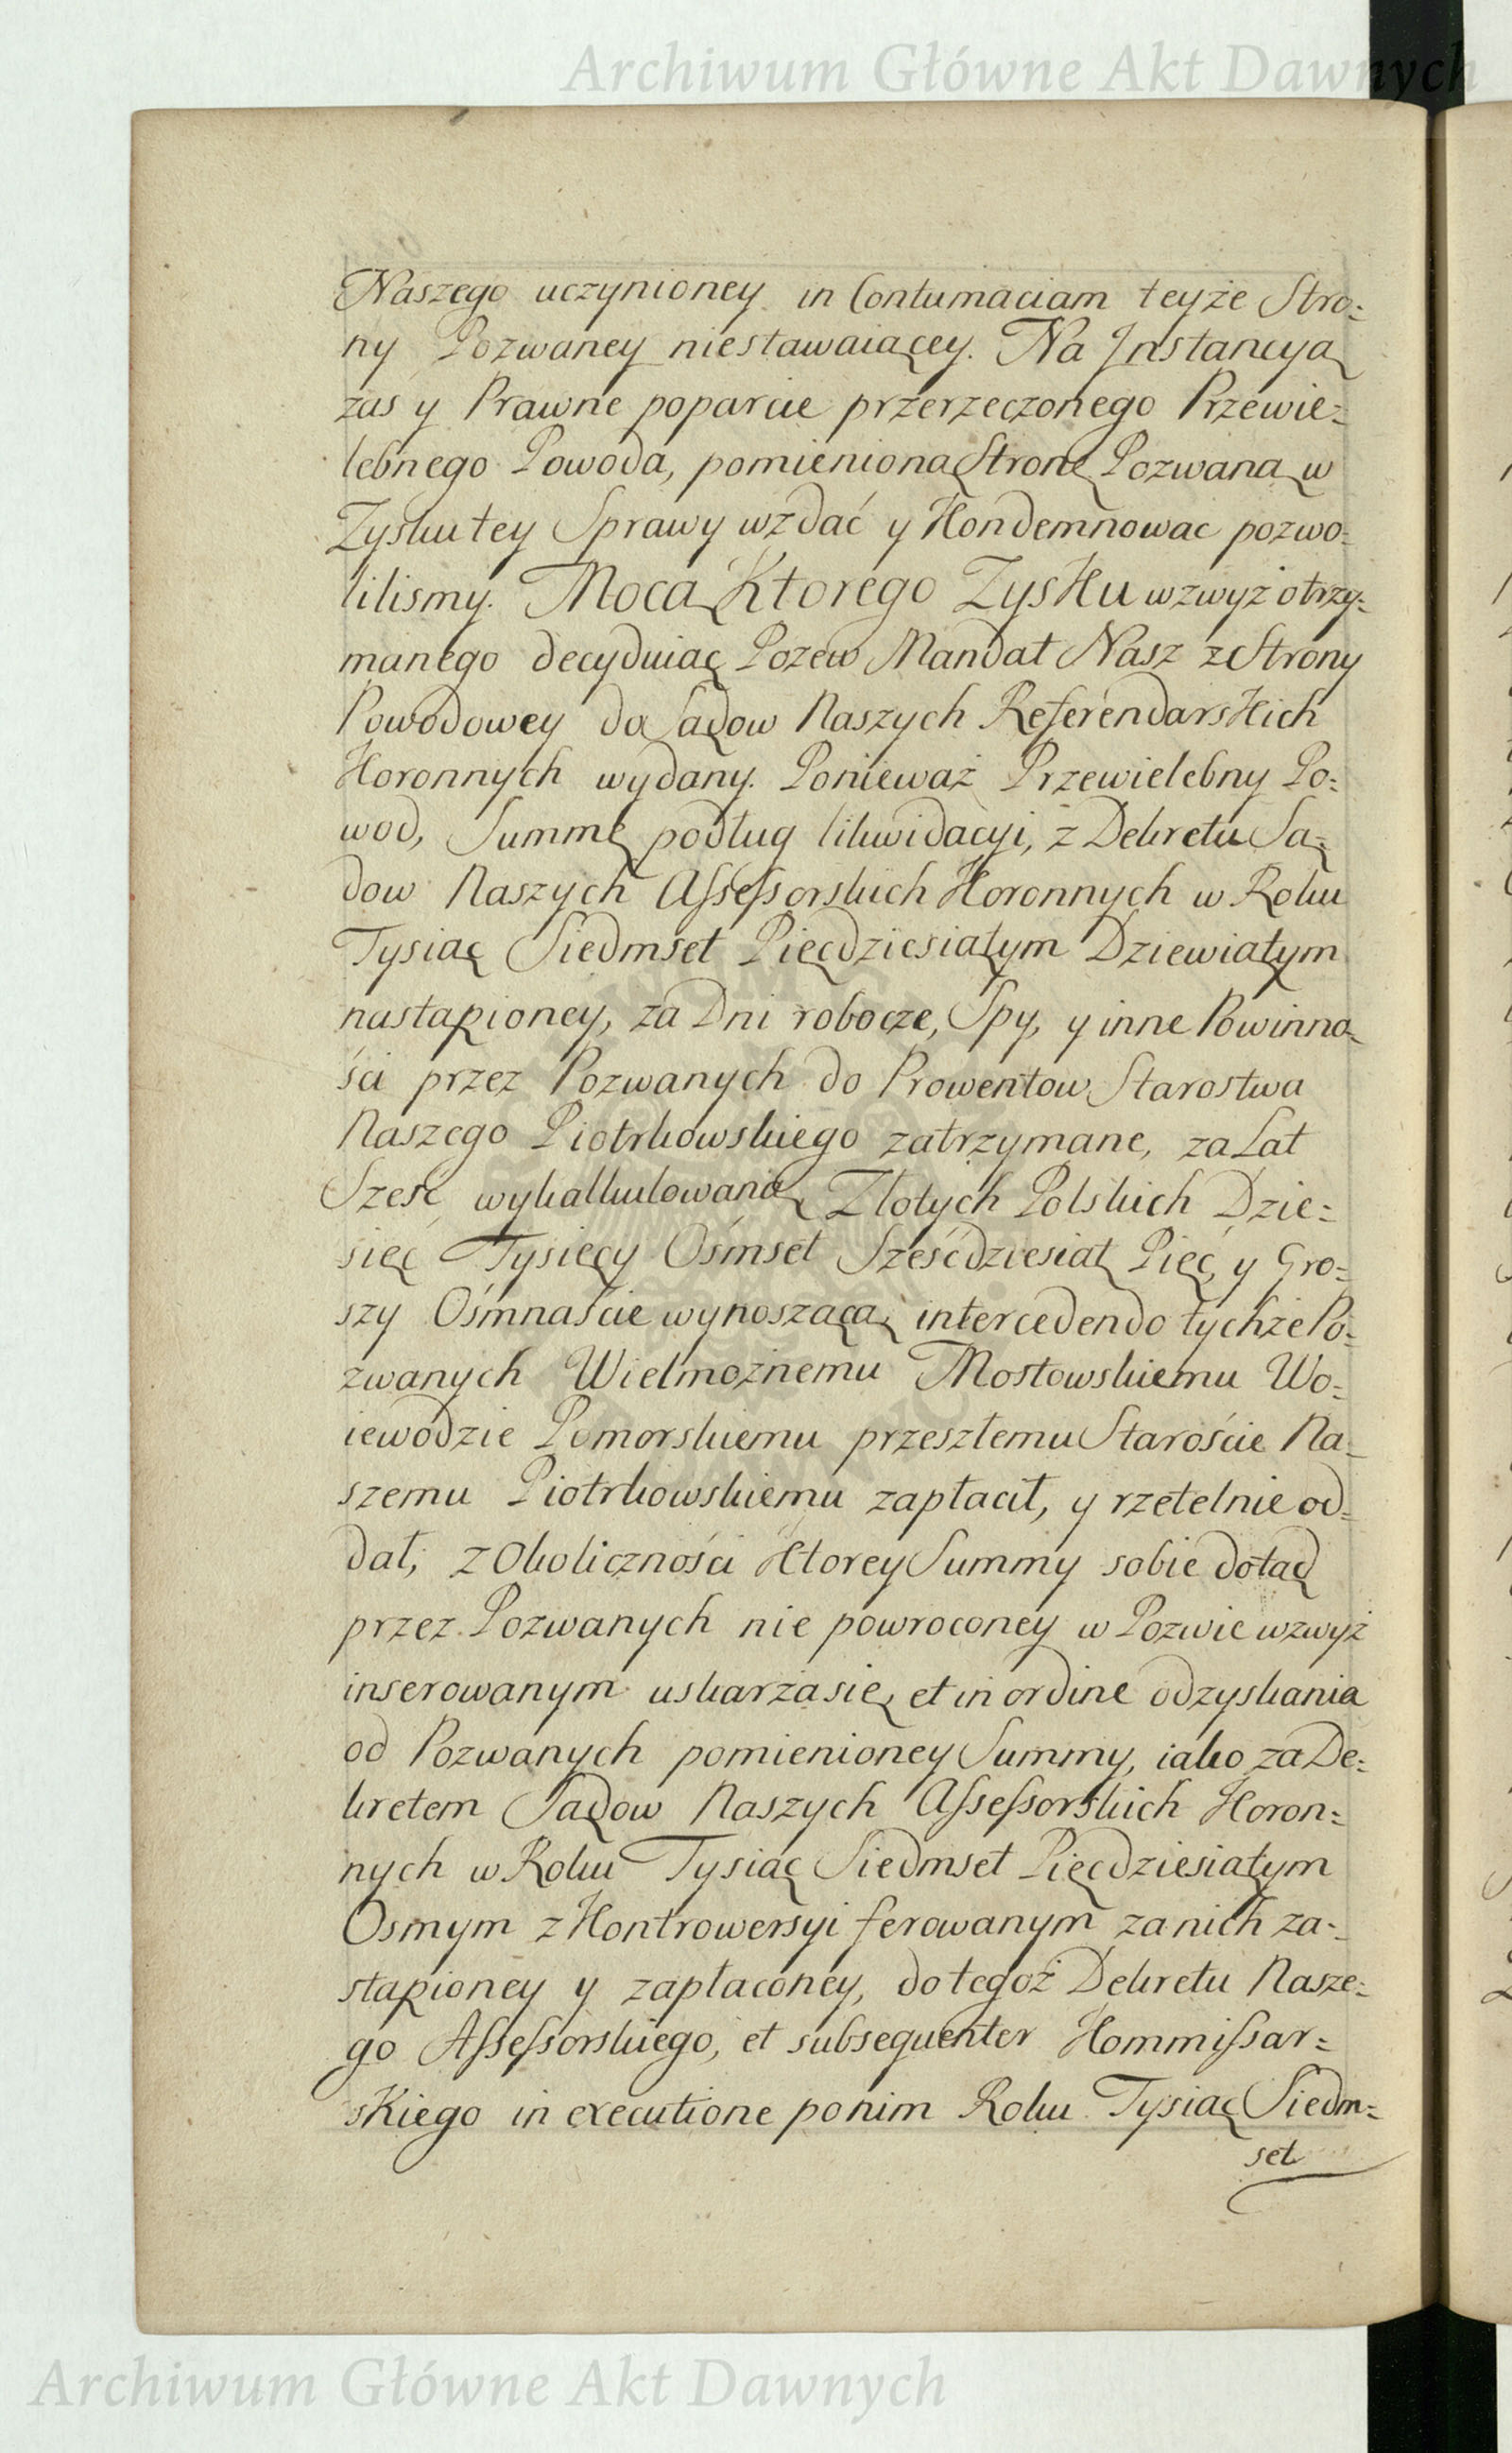 Archiwum Główne Akt Dawnych
Naszego uczynioney in Contumaciam teyże Stro:
ny Pozwaney niestawaiącey. Na Instancyą
zas y Prawne poparcie przerzeczonego Przewie:
lebnego Powoda, pomienioną Stronę Pozwaną w
Zysku tey Sprawy wzdać y Kondemnowac pozwo:
lilismy. Mocą Ktorego Zysku wzwyż otrzy:
manego decyduiąc Pozew Mandat Nasz z Strony
Powodowey do Sądow Naszych Referendarskich
Koronnych wydany. Ponieważ Przewielebny Po:
wod, Summę podług likwidacyi, z Dekretu Są:
dow Naszych Assessorskich Koronnych w Roku
Tysiąc Siedmset Pięcdziesiątym Dziewiątym
nastąpioney, za Dni robocze, Spy, y inne Powinno:
ści przez Pozwanych do Prowentow Starostwa
Naszego Piotrkowskiego zatrzymane, za Lat
Szesc wykalkulowaną Złotych Polskich Dzie:
sięc Tysięcy Ośmset Sześcdziesiąt Pięć, y Gro:
szy Ośmnaście wynoszącą, intercedendo tychże Po:
zwanych Wielmożnemu Mostowskiemu Wo:
iewodzie Pomorskiemu przeszłemu Starościе Na:
szemu Piotrkowskiemu zapłacił, y rzetelnie od:
dał, z Okoliczności Ktorey Summy sobie dotąd
przez Pozwanych nie powroconey w Pozwie wzwyż
inserowanym uskarza się, et in ordine odzyskania
od Pozwanych pomienioney Summy, iako za De:
kretem Sądow Naszych Assessorskich Koron:
nych w Roku Tysiąc Siedmset Pięcdziesiątym
Osmym z Kontrowersyi ferowanym za nich za:
stąpioney y zapłaconey, do tegoż Dekretu Nasze:
go Assessorskiego, et subsequenter Kommissar:
skiego in executione po nim Roku Tysiąc Siedm:
set
Archiwum Główne Akt Dawnych